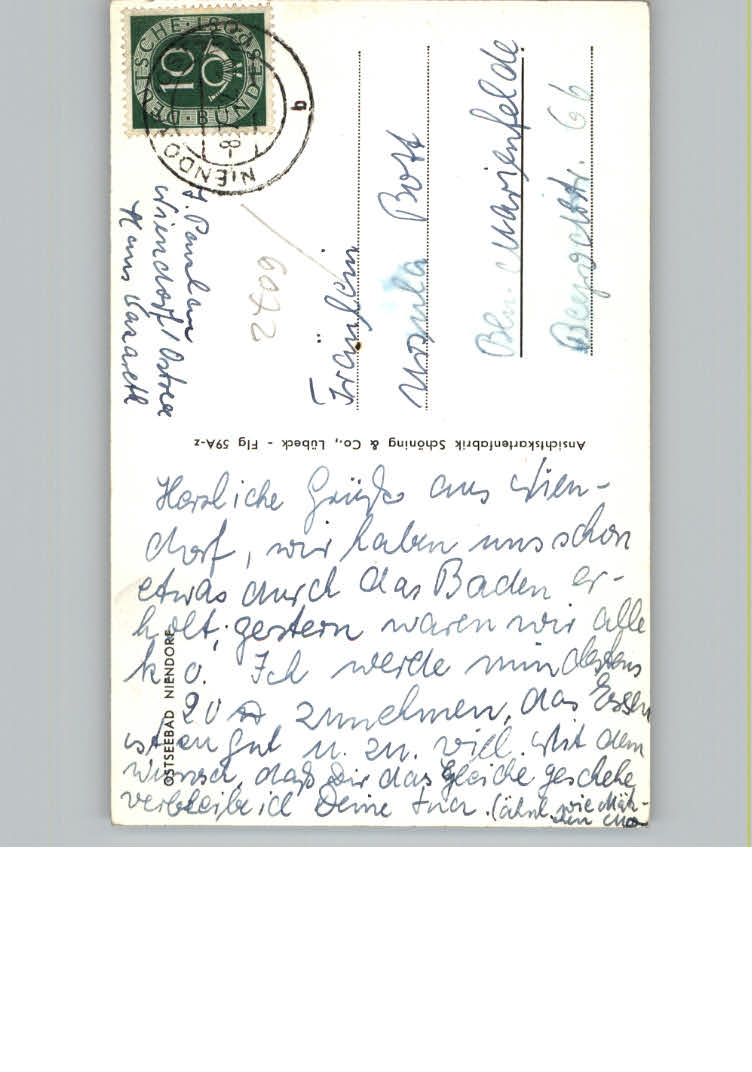 Herzliche Grüße aus Nien-
dorf, wir haben uns schon
etwas durch das Baden er-
holt, gestern waren wir alle
k. o. Ich werde mindestens
20 ℔ zunehmen, das Essen
ist zu gut u. zu viel. Mit dem
Wunsch, daß Dir das Gleiche geschehe
verbleibe ich Deine
(ähnl. wie
OSTSEEBAD NIENDORF
Ansichtskartenfabrik Schöning & Co., Lübeck - Flg 59A-z
Fräulein
Ursula Bott
Bln. Marienfelde
66
Niendorf/Ostsee
Haus Nazareth
6072
DEUTSCHE BUNDESPOST
10
NIENDORF